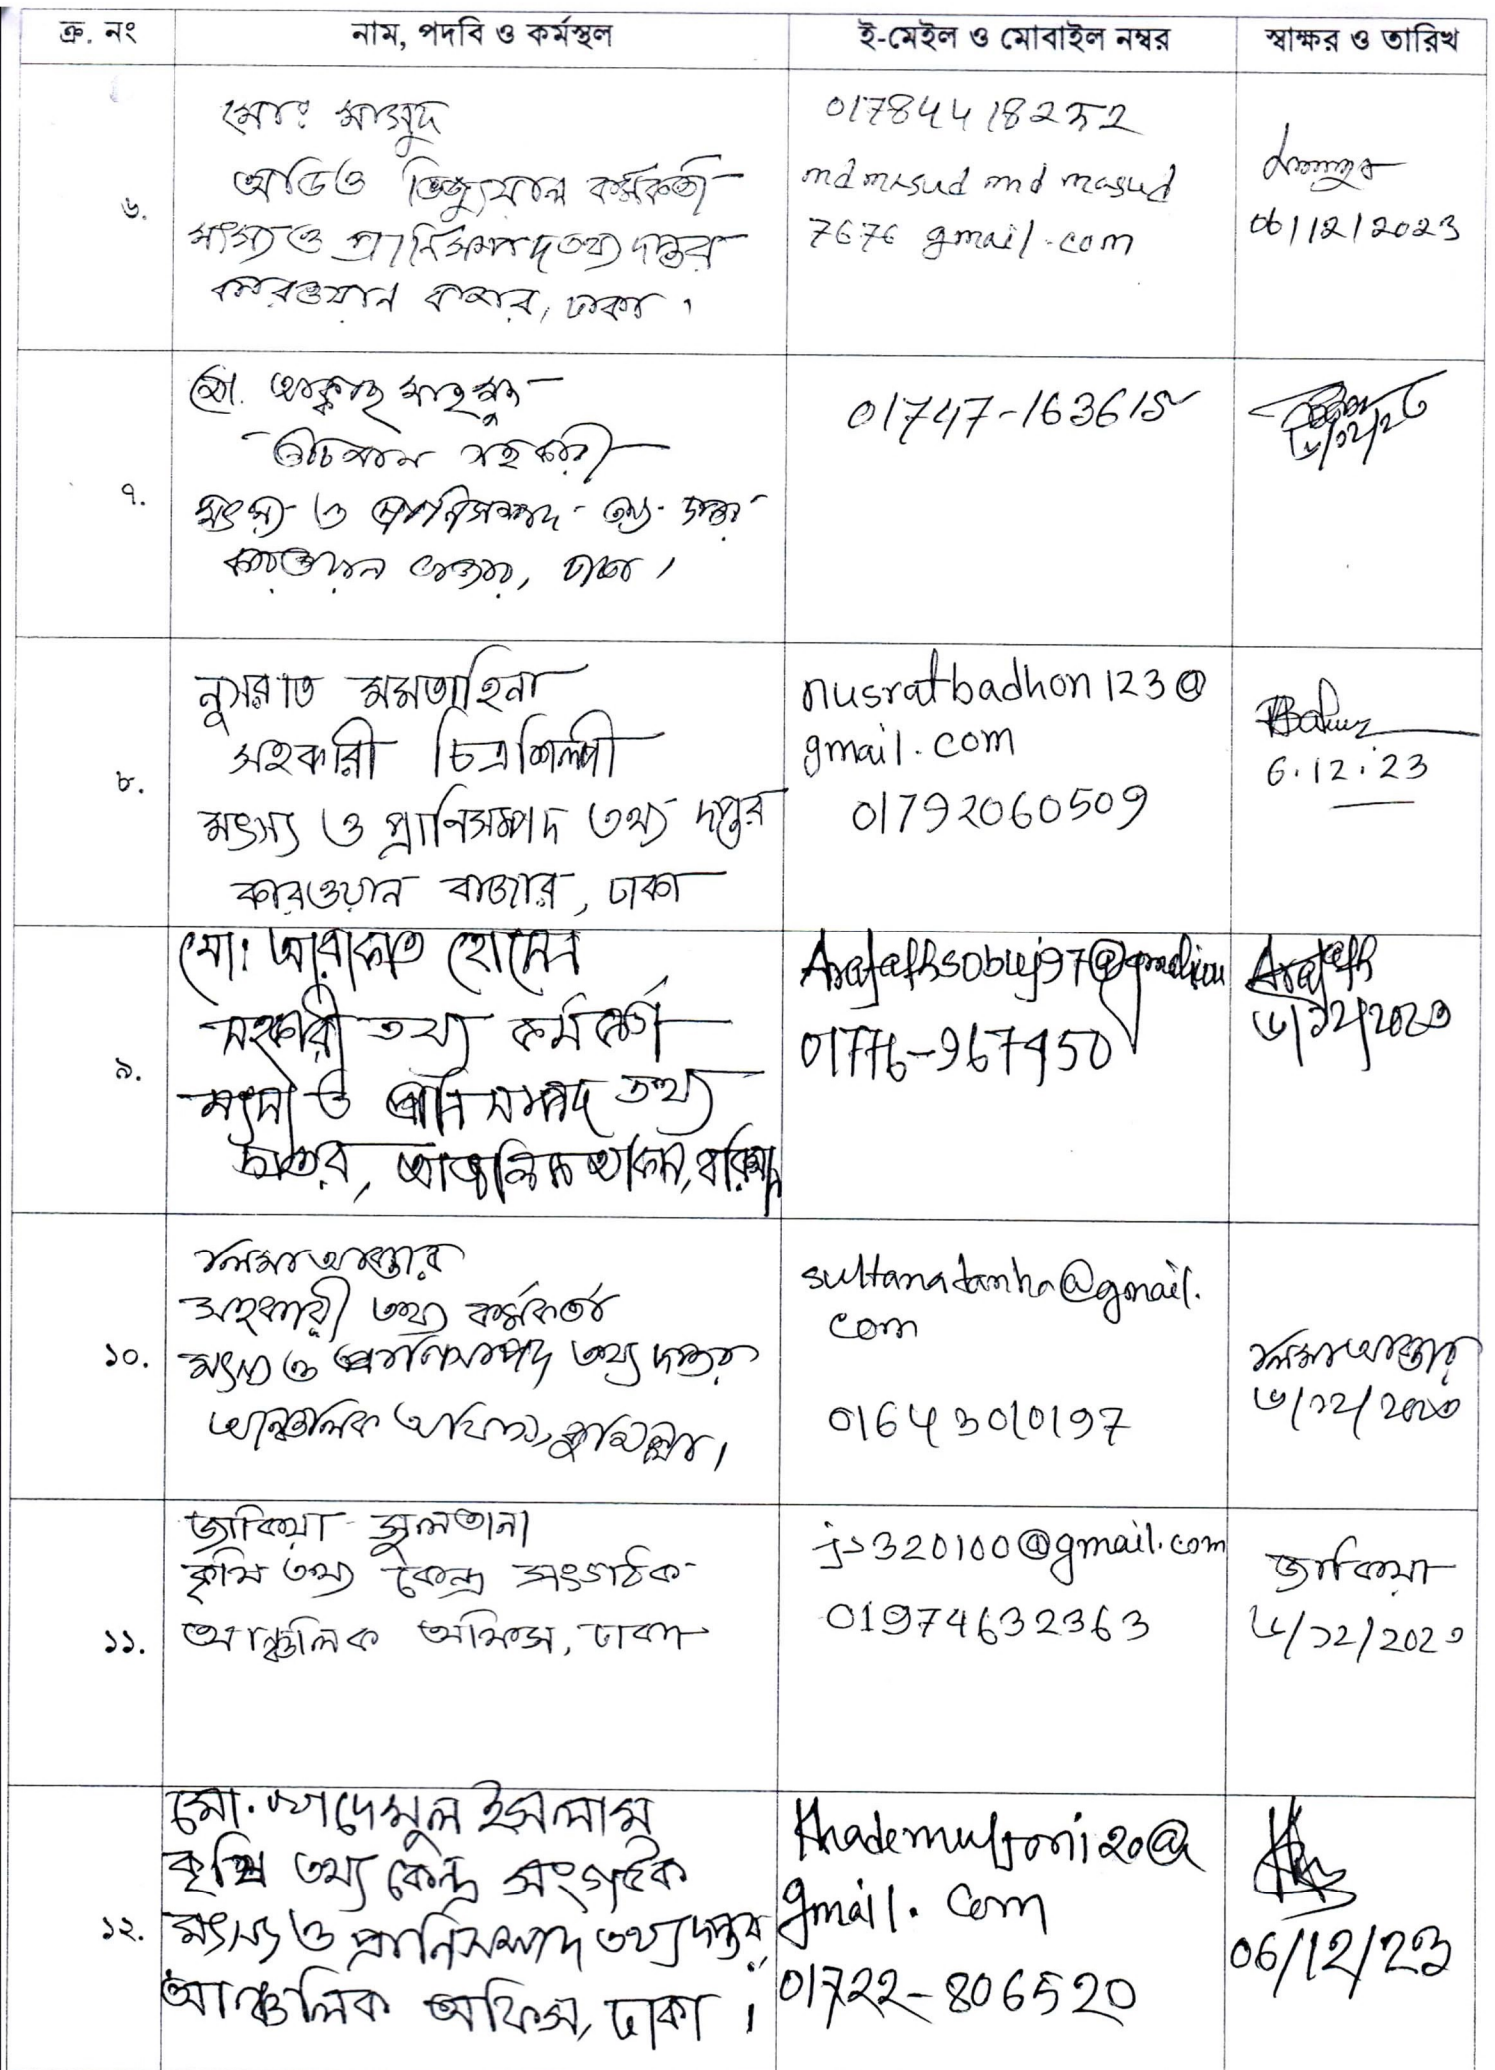 ক্র. নং নাম, পদবি ও কর্মস্থল ই-মেইল ও মোবাইল নম্বর স্বাক্ষর ও তারিখ
৬.
মোঃ মাসুদ
অডিও ভিজ্যুয়াল কর্মকর্তা
মৎস্য ও প্রাণিসম্পদ তথ্য দপ্তর
কারওয়ান বাজার, ঢাকা।
017844182
md masud md masud
7676 gmail.com
06/12/2023
৭.
মো.
সহকারী
মৎস্য ও প্রাণিসম্পদ তথ্য দপ্তর
কারওয়ান বাজার, ঢাকা।
01747-163615
৮.
নুসরাত মমতাহিনা
সহকারী চিত্রশিল্পী
মৎস্য ও প্রাণিসম্পদ তথ্য দপ্তর
কারওয়ান বাজার, ঢাকা
nusratbadhon123@
gmail.com
01792060509
6.12.23
৯.
মো: আরাফাত হোসেন
সহকারী তথ্য কর্মকর্তা
মৎস্য ও প্রাণিসম্পদ তথ্য
দপ্তর, আঞ্চলিক অফিস, বরিশাল
01776-967450
Arafath
৬/১২/২০২৩
১০.
সালমা আক্তার
সহকারী তথ্য কর্মকর্তা
মৎস্য ও প্রাণিসম্পদ তথ্য দপ্তর
আঞ্চলিক অফিস, কুমিল্লা।
sultanatanha@gmail.
com
01643010197
সালমা আক্তার
৬/১২/২০২৩
১১.
জাকিয়া সুলতানা
কৃষি তথ্য কেন্দ্র সংগঠক
আঞ্চলিক অফিস, ঢাকা
js320100@gmail.com
01974632363
জাকিয়া
৬/১২/২০২৩
১২.
মো. খাদেমুল ইসলাম
কৃষি তথ্য কেন্দ্র সংগঠক
মৎস্য ও প্রাণিসম্পদ তথ্য দপ্তর,
আঞ্চলিক অফিস, ঢাকা।
gmail.com
01722-806520
06/12/23